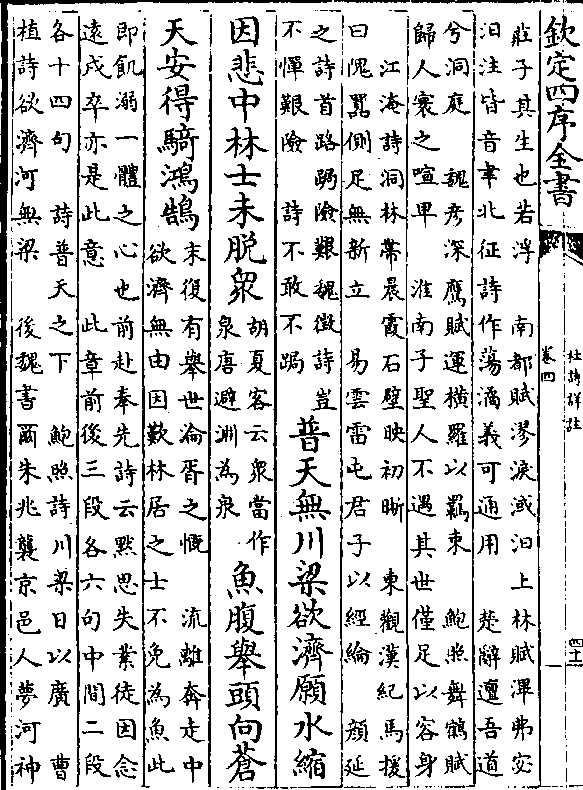 欽定四庫全書
杜詩詳註
卷四
莊子其生也若浮　南都賦漻淚淢汩　上林賦渾弗宓
汩注皆音聿北征詩作蕩潏義可通用　楚辭邅吾道
兮洞庭　魏彦深鷹賦運横羅以羈束　鮑照舞鶴賦
歸人寰之喧卑　淮南子聖人不遇其世僅足以容身
江淹詩洞林帶晨霞石壁映初晰　東觀漢紀馬援
曰隗囂側足無新立　易雲雷屯君子以經綸　顔延
之詩首路跼險艱魏徵詩豈
不憚艱險　詩不敢不跼
普天無川梁欲濟願水縮
因悲中林士未脱衆
胡夏客云衆當作
泉唐避淵為泉
魚腹舉頭向蒼
天安得騎鴻鵠
末復有舉世淪胥之慨　流離奔走中
欲濟無由因歎林居之士不免為魚此
即飢溺一體之心也前赴奉先詩云黙思失業徒因念
遠戍卒亦是此意　此章前後三段各六句中間二段
各十四句　詩普天之下　鮑照詩川梁日以廣　曹
植詩欲濟河無梁　後魏書爾朱兆襲京邑人夢河神